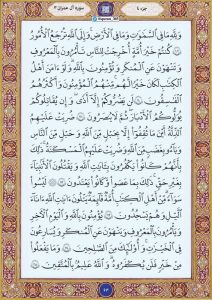 جزء ٤
سورة آل عمران ٣
وَلِلَّهِ مَا فِي السَّمَٰوَٰتِ وَمَا فِي الْأَرْضِ وَإِلَى اللَّهِ تُرْجَعُ الْأُمُورُ
كُنتُمْ خَيْرَ أُمَّةٍ أُخْرِجَتْ لِلنَّاسِ تَأْمُرُونَ بِالْمَعْرُوفِ
وَتَنْهَوْنَ عَنِ الْمُنكَرِ وَتُؤْمِنُونَ بِاللَّهِ وَلَوْ ءَامَنَ أَهْلُ
الْكِتَٰبِ لَكَانَ خَيْرًا لَّهُم مِّنْهُمُ الْمُؤْمِنُونَ وَأَكْثَرُهُمُ
الْفَٰسِقُونَ لَن يَضُرُّوكُمْ إِلَّا أَذًى وَإِن يُقَٰتِلُوكُمْ
يُوَلُّوكُمُ الْأَدْبَارَ ثُمَّ لَا يُنصَرُونَ ضُرِبَتْ عَلَيْهِمُ
الذِّلَّةُ أَيْنَ مَا ثُقِفُوا إِلَّا بِحَبْلٍ مِّنَ اللَّهِ وَحَبْلٍ مِّنَ النَّاسِ
وَبَاءُو بِغَضَبٍ مِّنَ اللَّهِ وَضُرِبَتْ عَلَيْهِمُ الْمَسْكَنَةُ ذَٰلِكَ
بِأَنَّهُمْ كَانُوا يَكْفُرُونَ بِـَٔايَٰتِ اللَّهِ وَيَقْتُلُونَ الْأَنبِيَاءَ
بِغَيْرِ حَقٍّ ذَٰلِكَ بِمَا عَصَوا وَّكَانُوا يَعْتَدُونَ لَيْسُوا
سَوَاءً مِّنْ أَهْلِ الْكِتَٰبِ أُمَّةٌ قَائِمَةٌ يَتْلُونَ ءَايَٰتِ اللَّهِ ءَانَاءَ
الَّيْلِ وَهُمْ يَسْجُدُونَ يُؤْمِنُونَ بِاللَّهِ وَالْيَوْمِ الْءَاخِرِ
وَيَأْمُرُونَ بِالْمَعْرُوفِ وَيَنْهَوْنَ عَنِ الْمُنكَرِ وَيُسَٰرِعُونَ
فِي الْخَيْرَٰتِ وَأُولَٰئِكَ مِنَ الصَّٰلِحِينَ وَمَا يَفْعَلُوا
مِنْ خَيْرٍ فَلَن يُكْفَرُوهُ وَاللَّهُ عَلِيمٌ بِالْمُتَّقِينَ